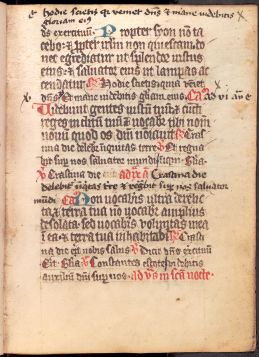 hodie scietis qr veniet dns & mane videbitis
gloriam eius
ds exercituum. Propter syon no ta
cebo: & propter irlm non quiescam. do
nec egrediatur ut splendor iustus
eius: & salvator eius ut lampas ac
cendatur. Hodie scietis quia veniet
dns. Et mane videbitis gliam eius. Ad vi an e
Videbunt gentes iustum tuum & cuncti
reges inclitum tuum & vocabit tibi nom
novum quod os dni noiavit. Cras
tina die delebit iniquitas terre. Et regna
bit sup nos salvator mundi. Glia.
Crastina die erit Crastina die
delebit iniqtas tre & regbit sup nos salvator
mundi Non vocaberis ultra derelic
ta: & terra tua no vocabit amplius
desolata. sed vocaberis voluntas mea
i ea: & terra tua inhabitabit. Crasti
na die erit vobis salus. Dicit dns exercituum
Constantes estote videbitis
auxilium dni sup vos. ad vs in scta nocte.